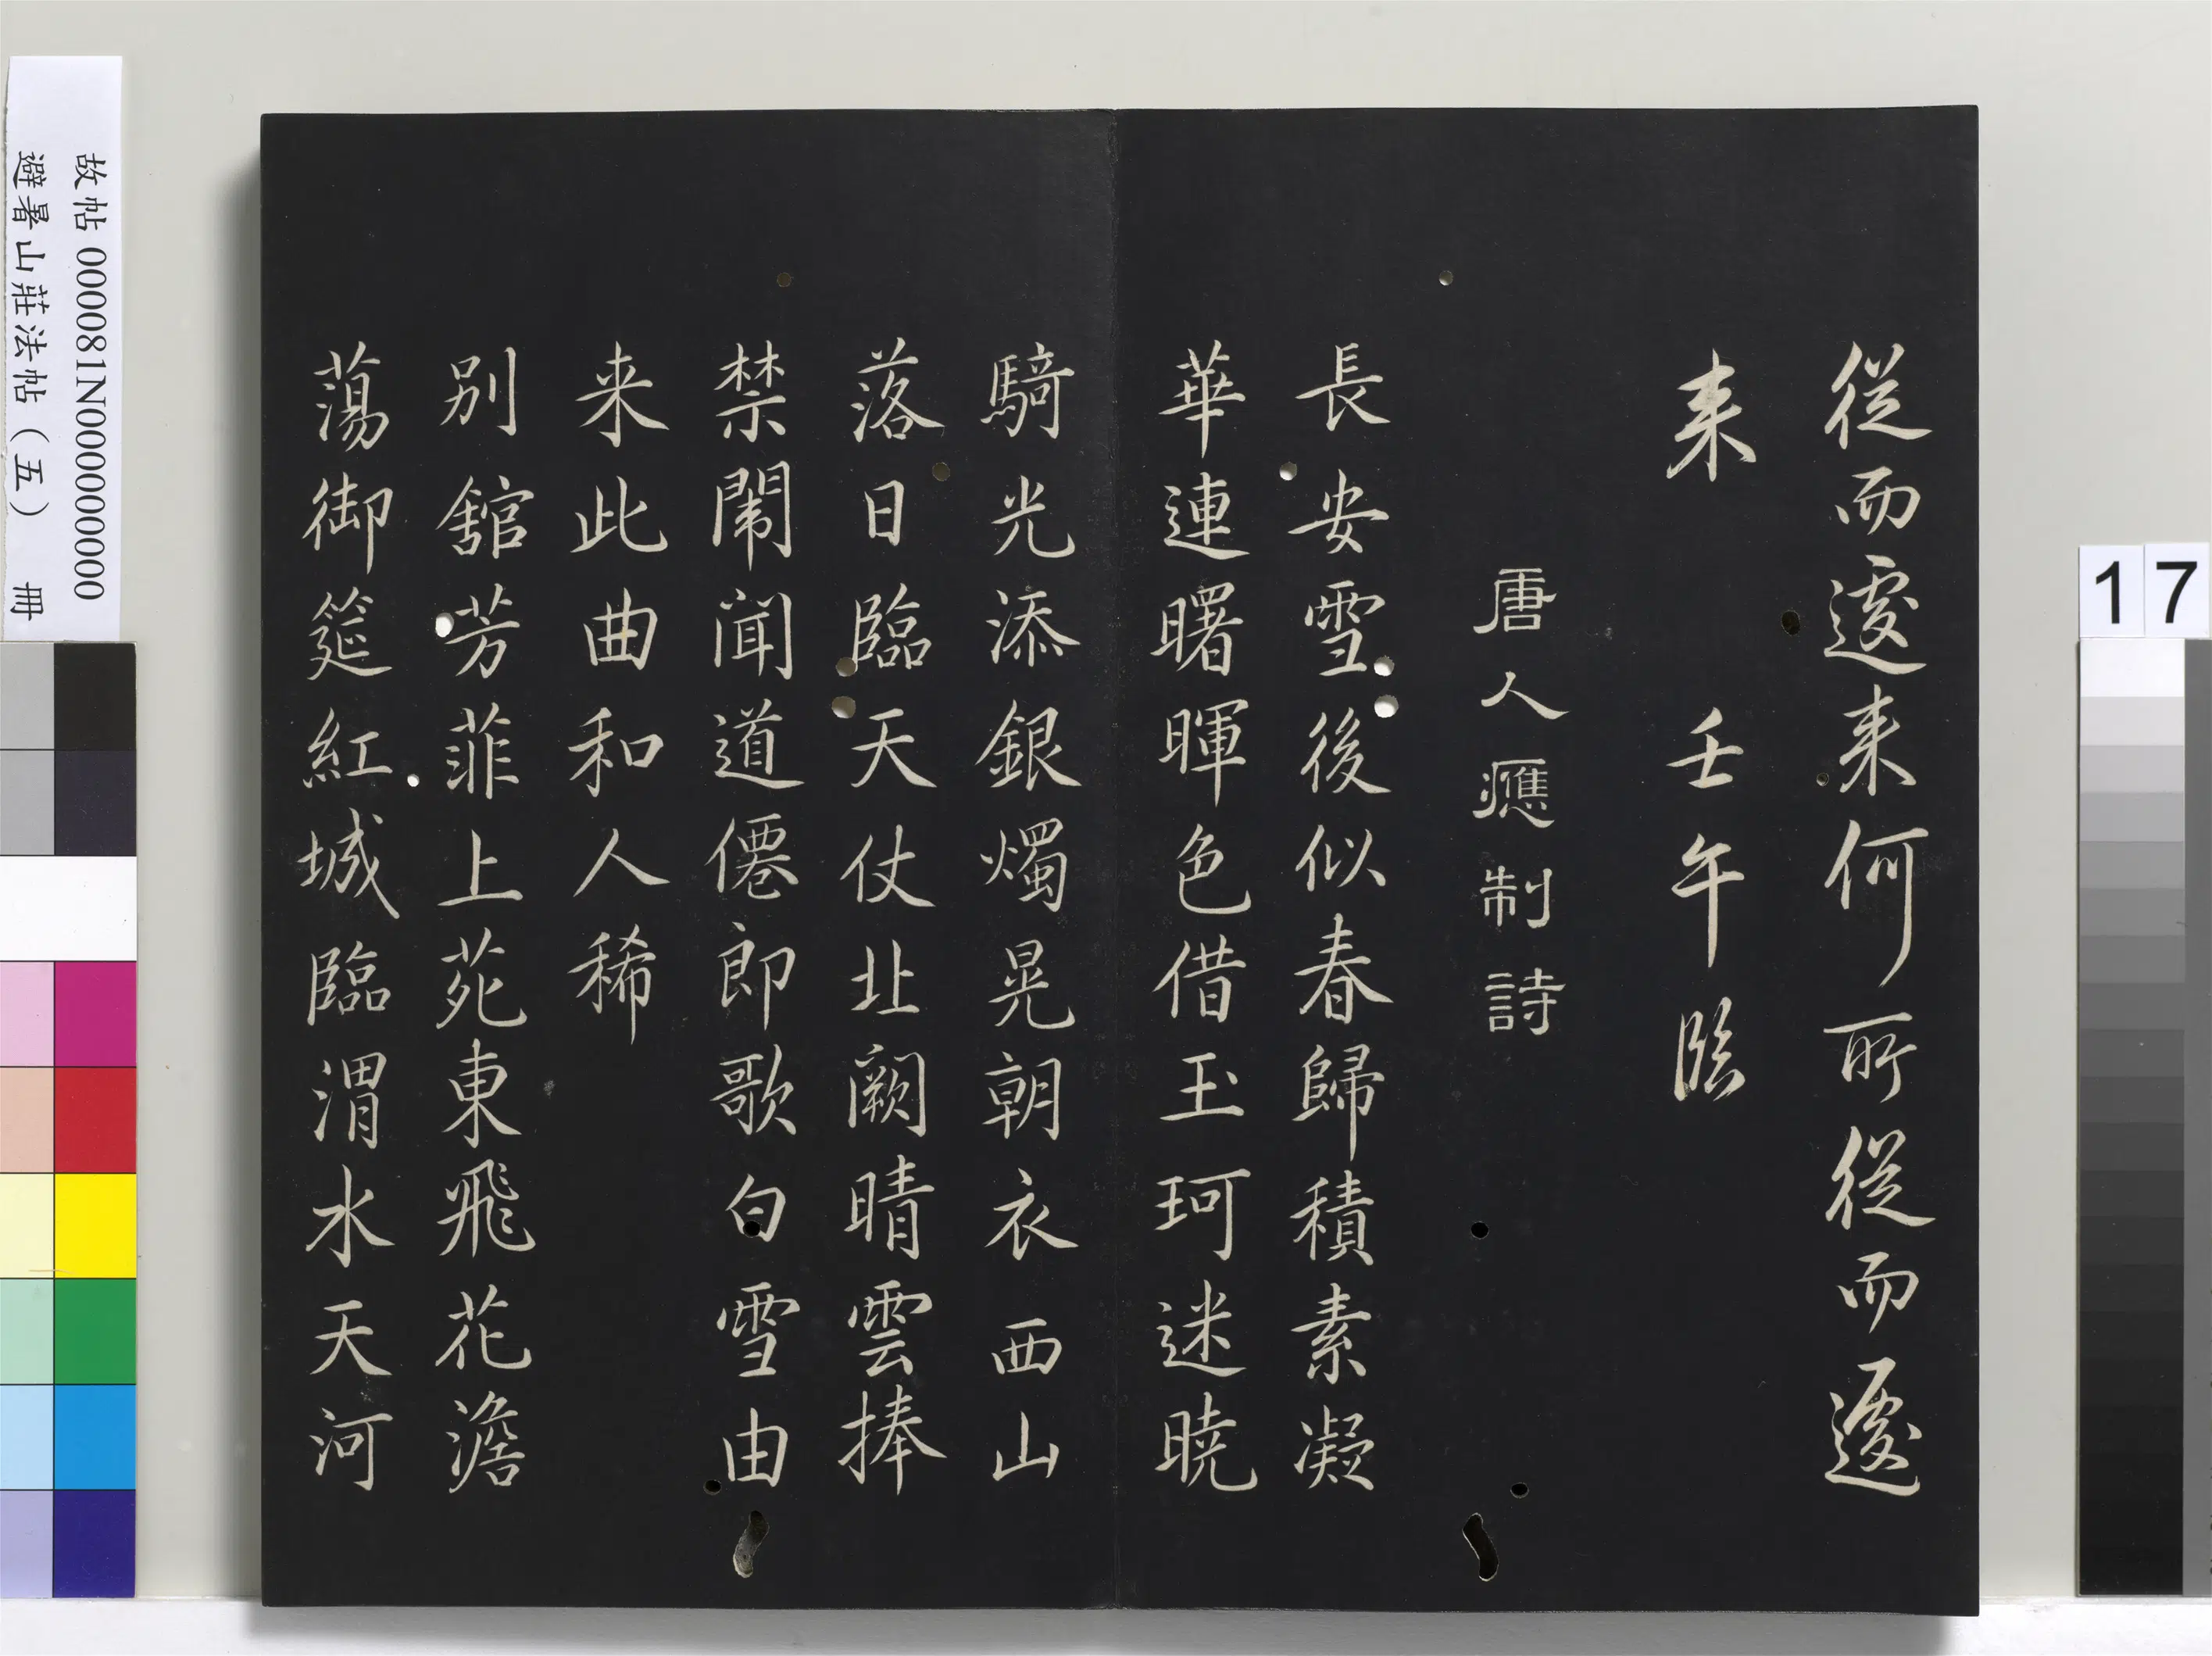 從而遽来何所從而遽
来 壬午臨
唐人應制詩
長安雪後似春歸積素凝
華連曙暉色借玉珂迷曉
騎光添銀燭晃朝衣西山
落日臨天仗北闕晴雲捧
禁闈聞道僊郎歌白雪由
来此曲和人稀
別舘芳菲上苑東飛花澹
蕩御筵紅城臨渭水天河
故帖 000081N000000000
避暑山莊法帖（五） 冊
17